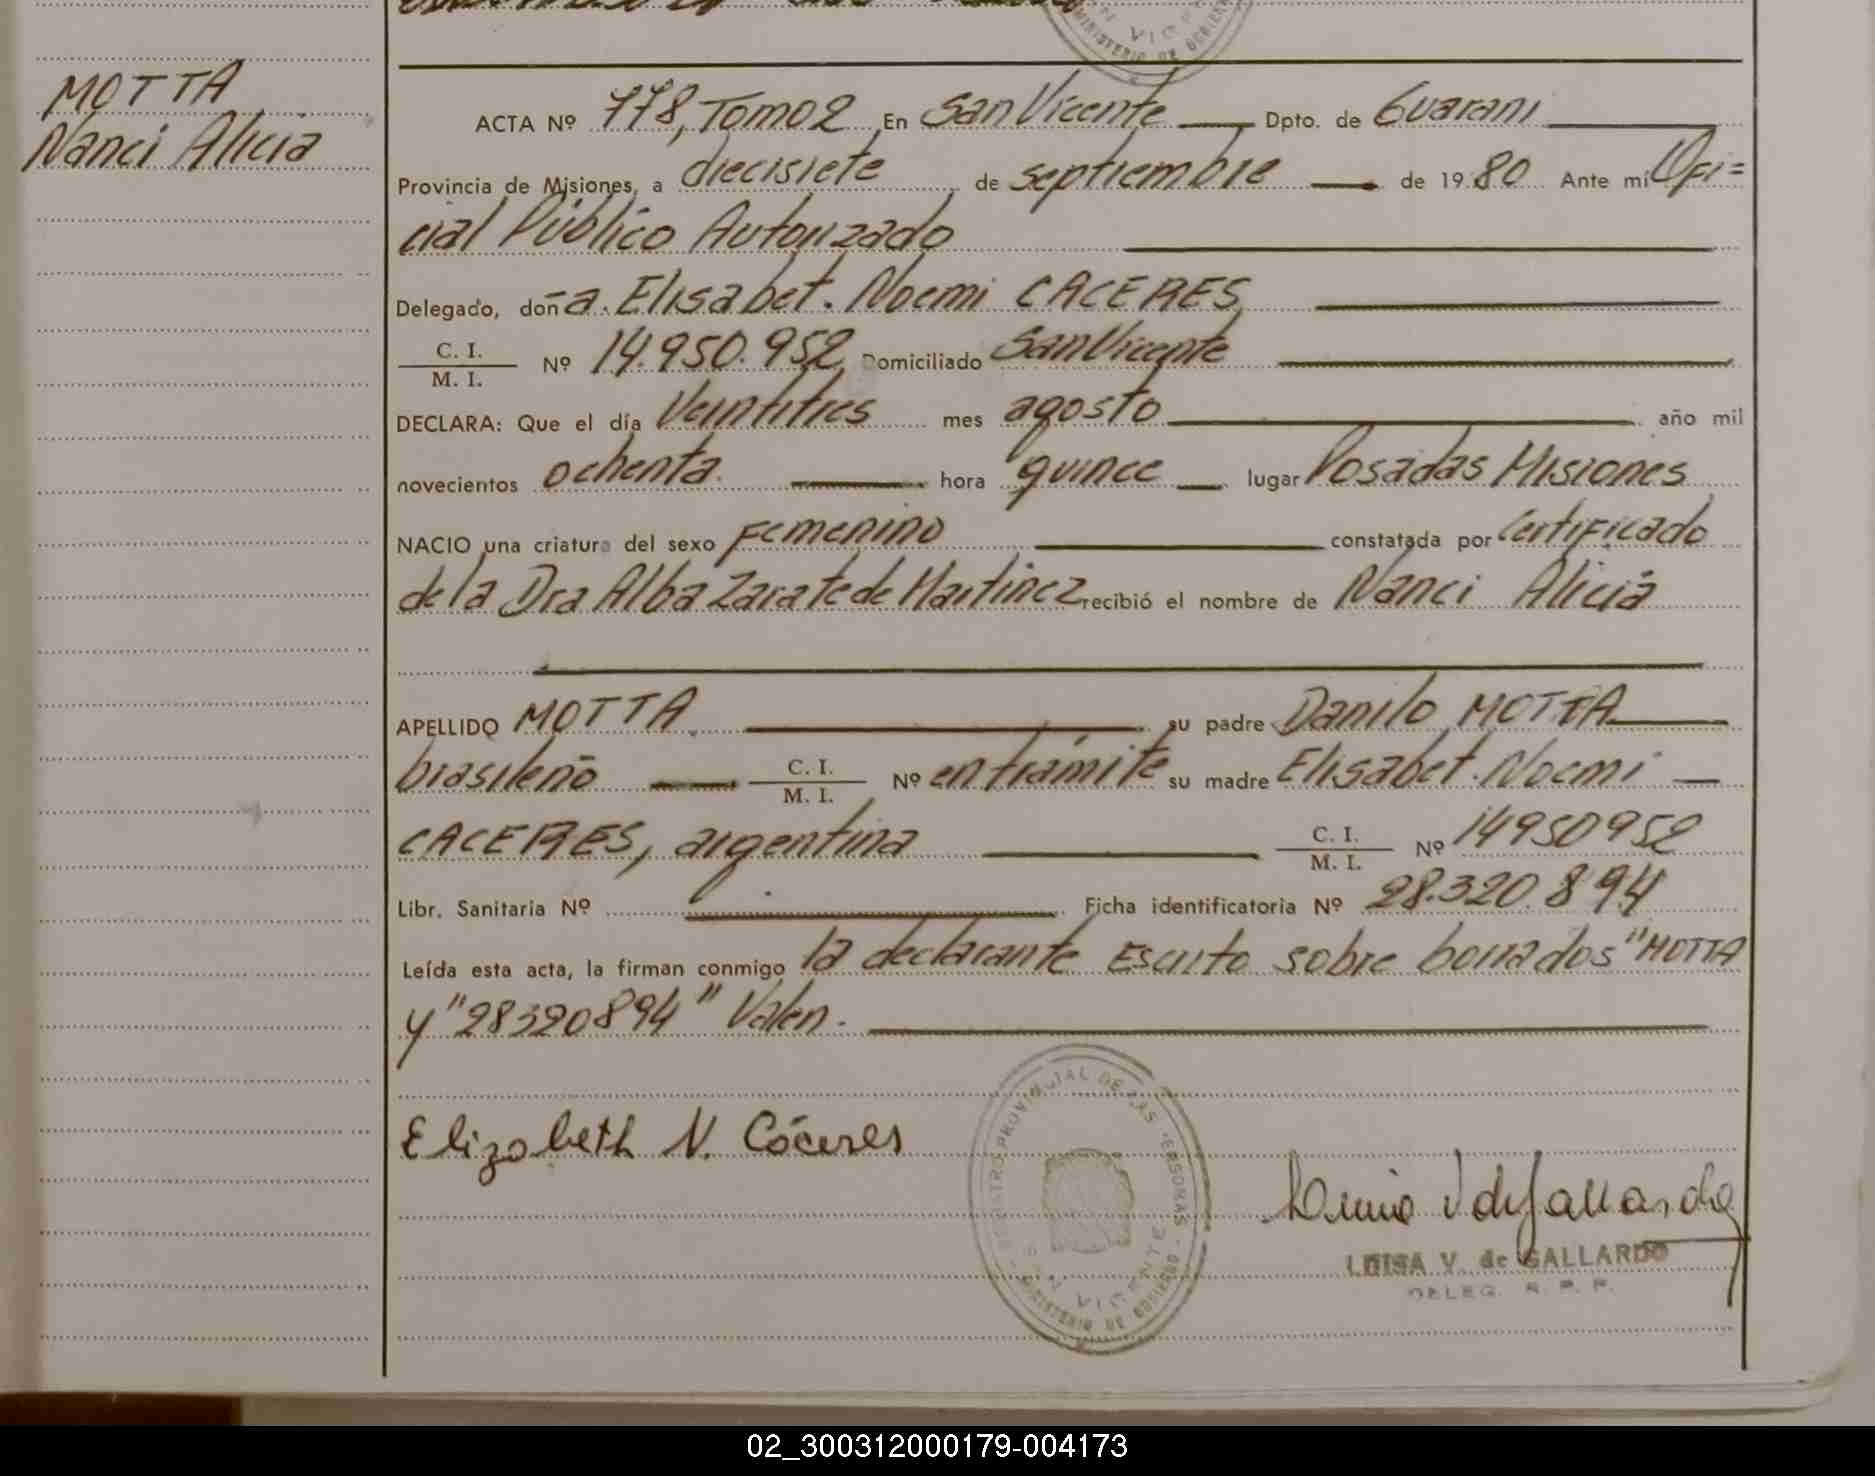 MOTTA
Nanci Alicia
VICE
MINISTERIO DE GOBIERNO
ACTA Nº 778, Tomo 2 En San Vicente Dpto. de Guaraní
Provincia de Misiones, a diecisiete de septiembre de 1980 Ante mí Ofi=
cial Público Autorizado
Delegado, doña. Elisabet. Noemi CACERES
C. I.
M. I. Nº 14.950.952 Domiciliado San Vicente
DECLARA: Que el día Veintitres mes agosto año mil
novecientos ochenta. hora quince lugar Posadas Misiones
NACIO una criatura del sexo Femenino constatada por Certificado
de la Dra Alba Zarate de Martinez recibió el nombre de Nanci Alicia
APELLIDO MOTTA su padre Danilo MOTTA
brasileño C. I.
M. I. Nº en trámite su madre Elisabet. Noemi
CACERES, argentina C. I.
M. I. Nº 14950952
Libr. Sanitaria Nº Ficha identificatoria Nº 28.320.894
Leída esta acta, la firman conmigo la declarante Escrito sobre borrados "MOTTA
y "28320894" Valen.
Elizabeth N. Cáceres
REGISTRO PROVINCIAL DE LAS PERSONAS
SAN VICENTE
MINISTERIO DE GOBIERNO
LUISA V. de GALLARDO
DELEG. R. P. P.
02_300312000179-004173